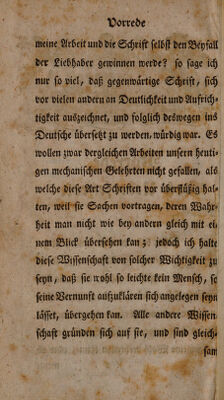 Vorrede
meine Arbeit und die Schrift selbst den Beyfall
der Liebhaber gewinnen werde? so sage ich
nur so viel, daß gegenwärtige Schrift, sich
vor vielen andern an Deutlichkeit und Aufrich-
tigkeit auszeichnet, und folglich deswegen ins
Deutsche übersetzt zu werden, würdig war. Es
wollen zwar dergleichen Arbeiten unsern heuti-
gen mechanischen Gelehrten nicht gefallen, als
welche diese Art Schriften vor überflüßig hal-
ten, weil sie Sachen vortragen, deren Wahr-
heit man nicht wie bey andern gleich mit ei-
nem Blick übersehen kan; jedoch ich halte
diese Wissenschaft von solcher Wichtigkeit zu
seyn, daß sie wohl so leichte kein Mensch, so
seine Vernunft aufzuklären sich angelegen seyn
lässet, übergehen kan. Alle andere Wissen-
schaft gründen sich auf sie, und sind gleich-
sam